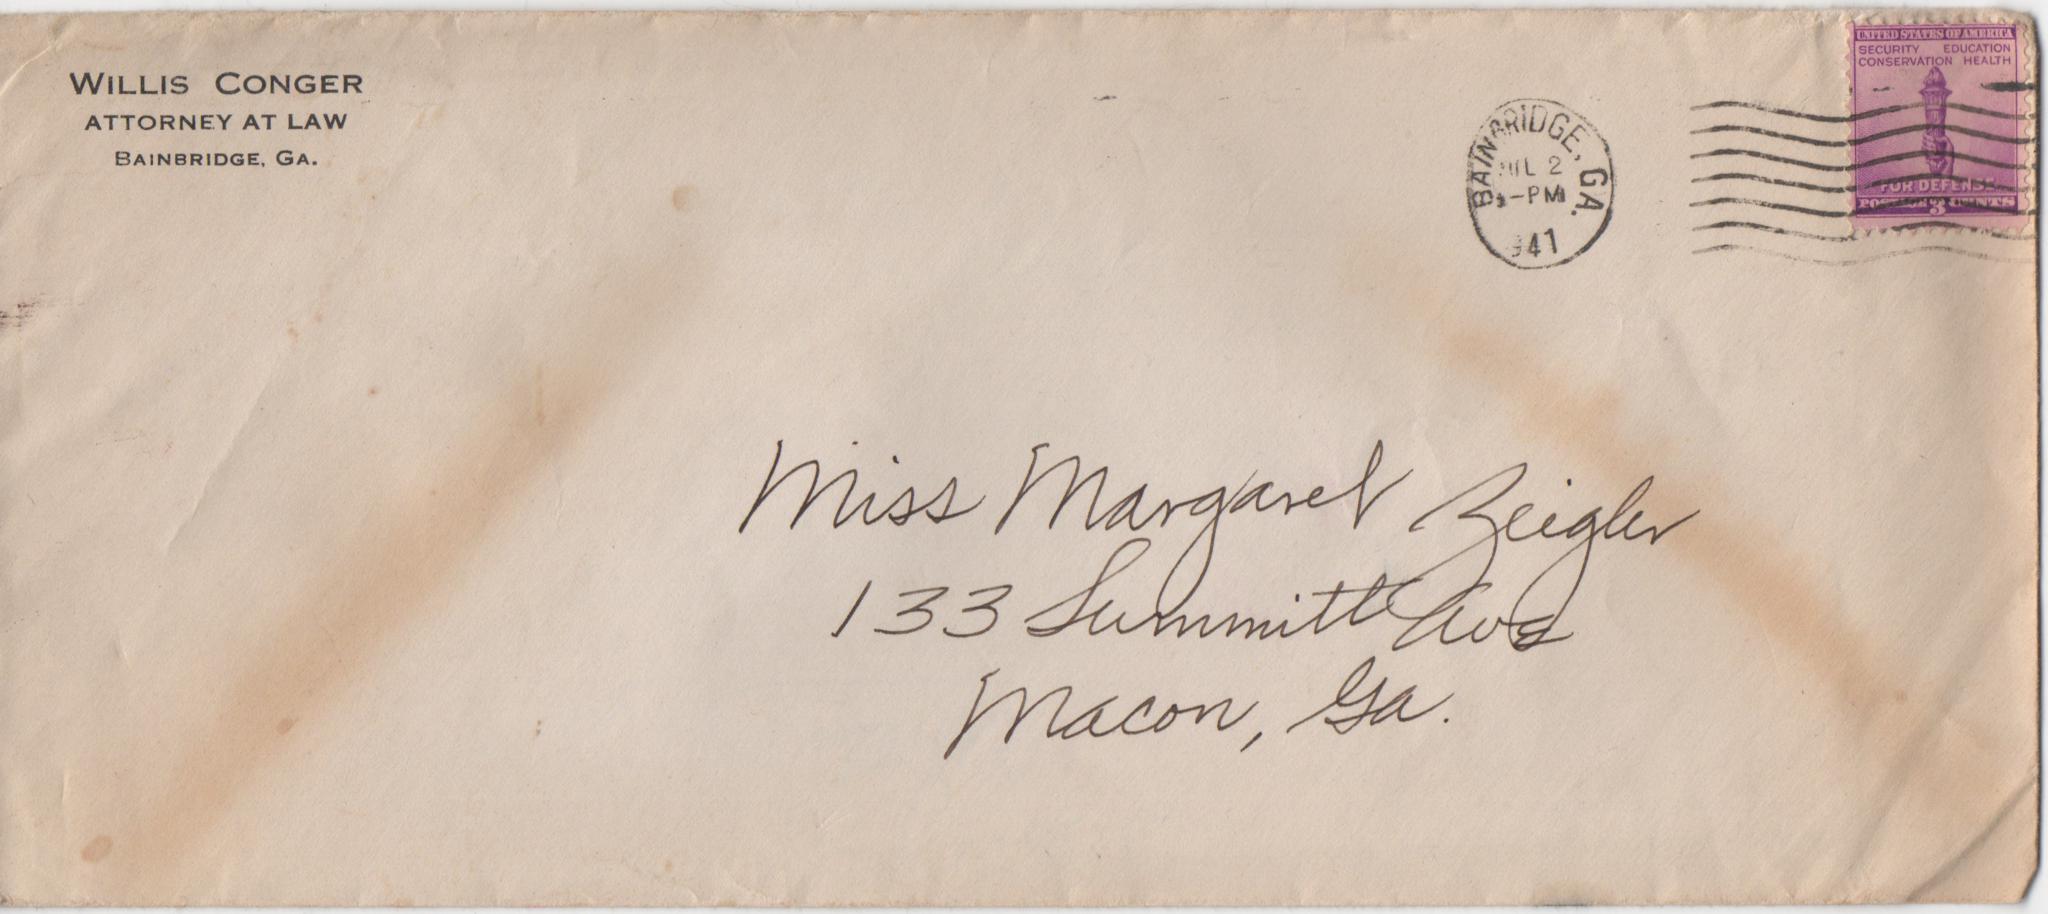 WILLIS CONGER
ATTORNEY AT LAW
BAINBRIDGE, GA.
BAINBRIDGE, GA.
JUL 2
-PM
1941
UNITED STATES OF AMERICA
SECURITY EDUCATION
CONSERVATION HEALTH
FOR DEFENSE
POSTAGE 3 CENTS
Miss Margaret Zeigler
133 Summitt Ave
Macon, Ga.